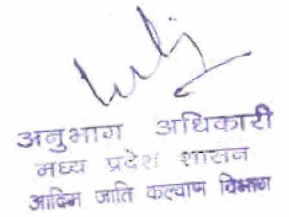 अनुभाग अधिकारी
मध्य प्रदेश शासन
आदिम जाति कल्याण विभाग